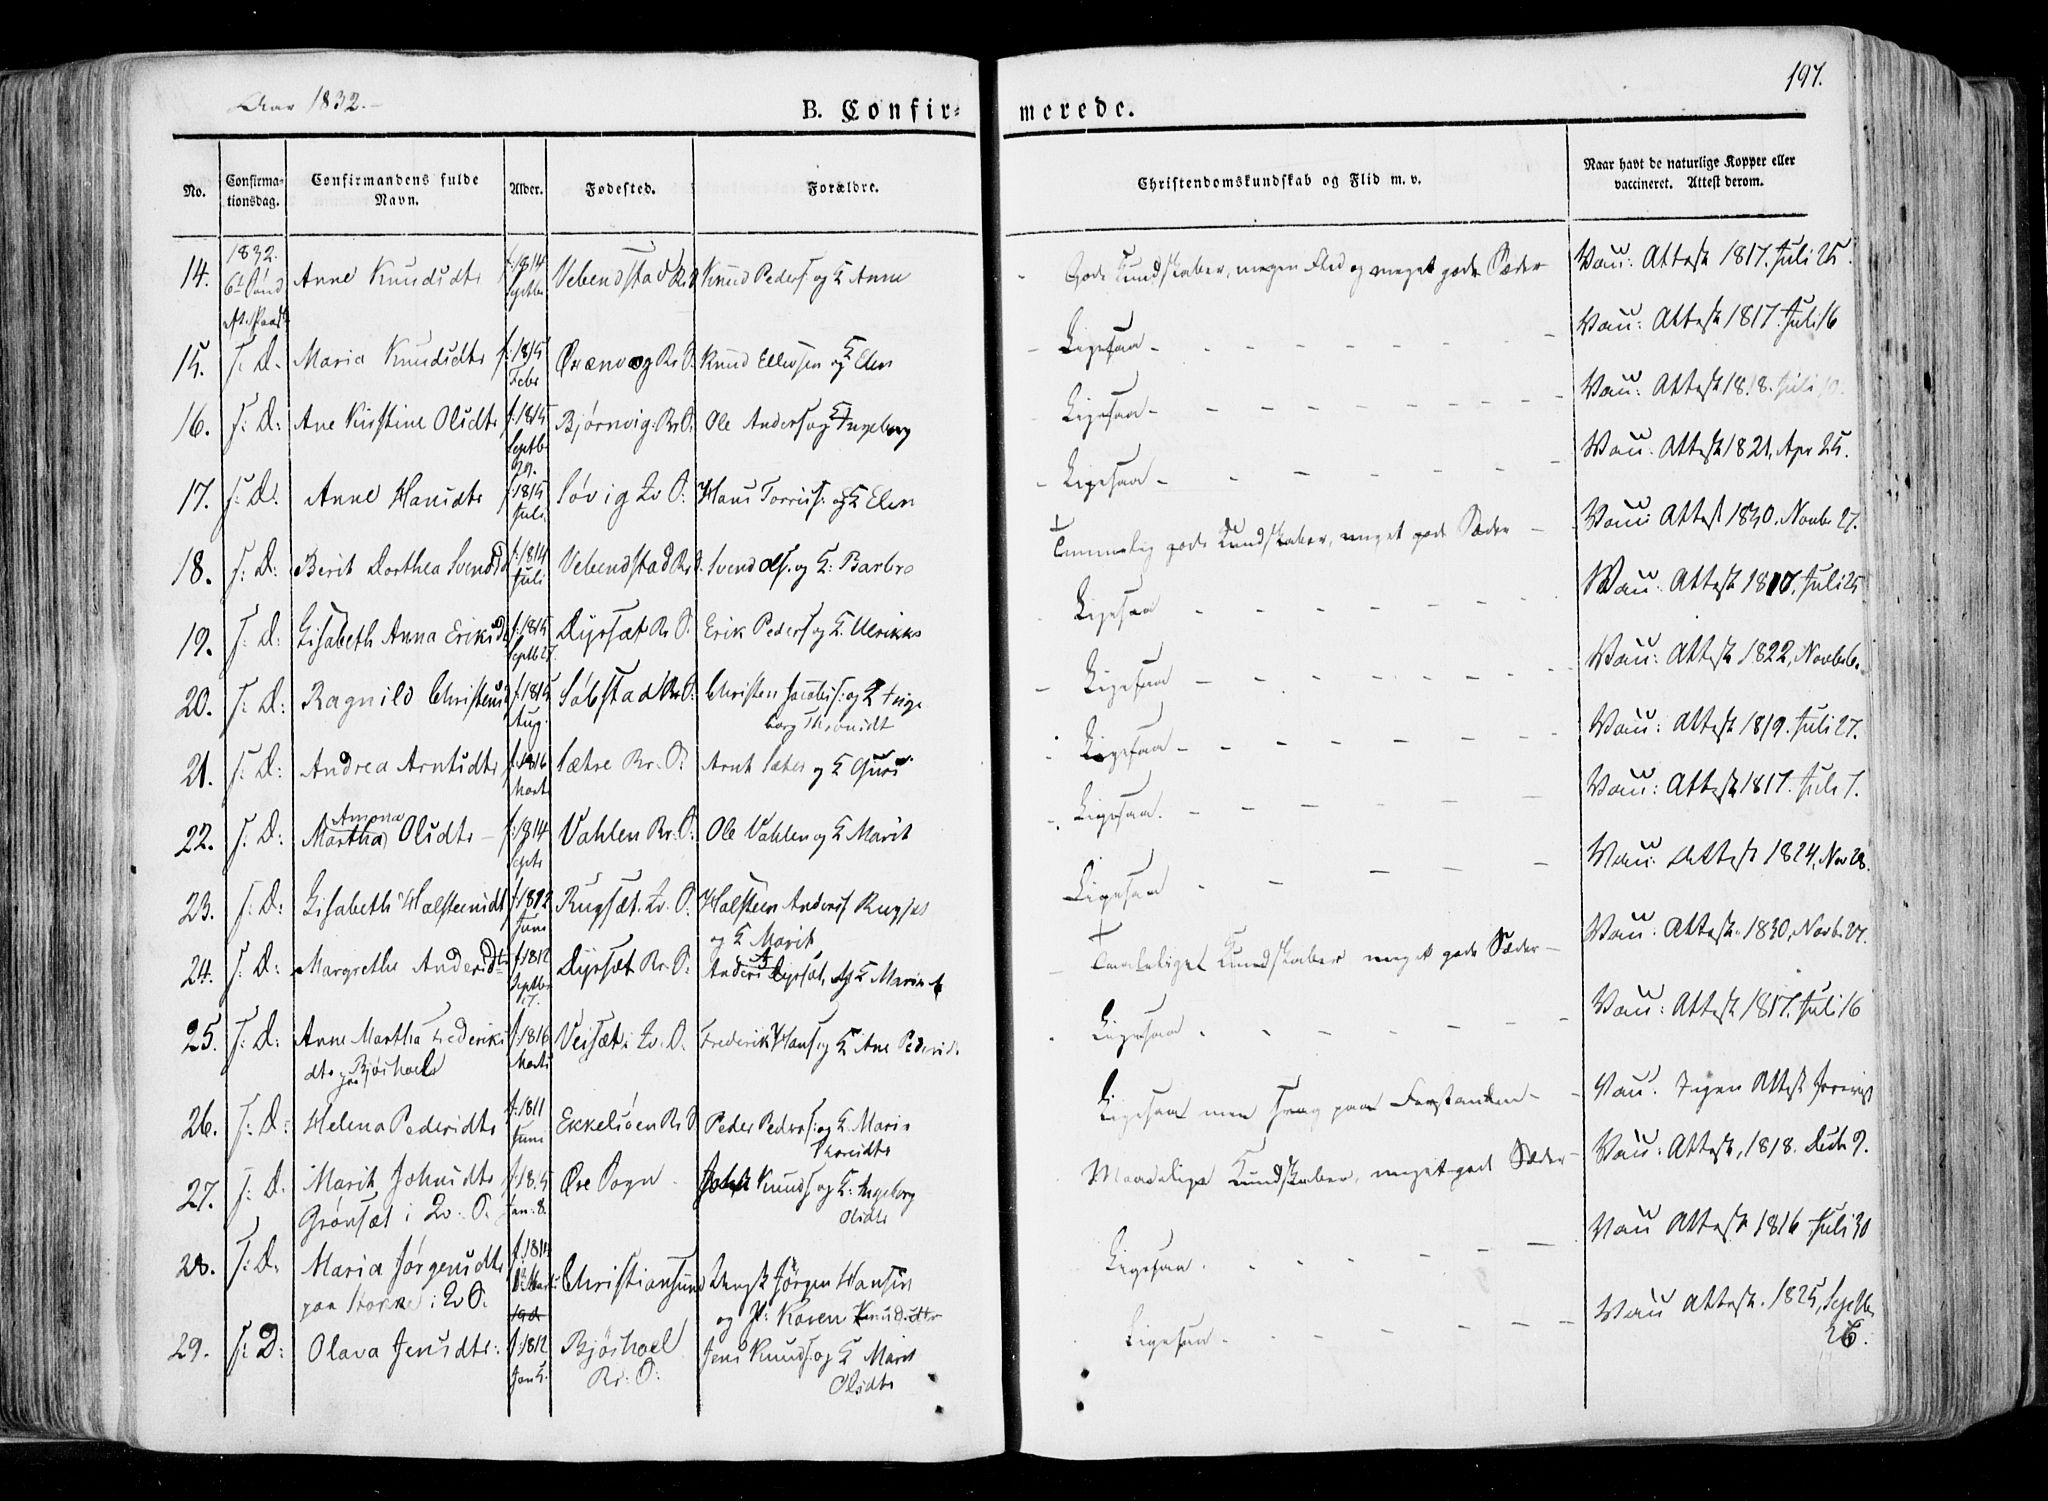 Aar 1832.
B. Confir=
merede.
197.
No.
Confirma-
tionsdag.
Confirmandens fulde
Navn.
Alder.
Fødested.
Forældre.
Christendomskundskab og Flid m. v.
Naar havt de naturlige Kopper eller
vaccineret. Attest derom.
1832.
14. Anne Knudsdtr f: 1814 Septbr Vebenstad Kr O Knud Peders: og K Anne Gode Kundskaber, megen Flid og meget gode Sæder Vac: Attest 1817. Juli 25.
15. S: D. Maria Knudsdtr f: 1815 Febr Ørænvog Kr O. Knud Ellevsen og K Elen Ligesaa - Vac: Attest 1817. Juli 16
16. S: D: Ane Kirstine Olsdtr f: 1815 Septbr 29. Bjørnvig. Kr O: Ole Anders og K Ingeborg Ligesaa - Vac: Attest 1818. Juli
17. S: D. Anne Hansdtr f: 1815 Juli Søvig Kv. O: Hans Torris: og K Elen Ligesaa - Vac: Attest 1821, Apr 25.
18. S: D: Berit Dorthea Svendsd f: 1814 Juli Vebenstad Kr O. Svend Ols. og K: Barbro Temmelig gode Kundskaber, meget gode Sæder - Vac: Attest 1830. Novbr 27.
19. S: D: Lisabeth Anna Eriksd f: 1815 Septb 27. Dyrsæt Kr O. Erik Peders og K. Ulrikke Ligesaa Vac: Attest 1817. Juli 25
20. S: D: Ragnild Christensd f: 1815 Aug. Søbstad Kr O: Christen Jacobs: og K Inge
borg Thronsdt Ligesaa Vac: Attest 1822, Novbr 6.
21. S: D: Andrea Arntsdtr f: 1816 Marts Sætre Kr. O: Arnt Sæter og K Guri Ligesaa - Vac: Attest 1819. Juli 27.
Antona
22. S: D: Martha Olsdtr - f: 1814 Septr Vahlen Kr. O. Ole Vahlen og K Marit Ligesaa. Vac: Attest 1817. Juli 7.
23. S: D: Lisabeth Halsteensdt Juni Rugsæt. Kv. O. Halsteen Anders Rugsæt
og K Marit Ligesaa Vac: Attest 1824, Nov 28.
24. S: D: Margrethe Andersdtr f: 1812 Septbr 17. Dyrsæt Kr. O. Anders Dyrsæt, og K Marit Taaleliget Kundskaber meget gode Sæder - Vac: Attest. 1830, Novb. 27.
25. S: D: Anne Martha Frederiks
dtr Bjøshoel f: 1816 Marts Veisæt i Kv. O. Frederik Hans og K Ane Pedersdt. Ligesaa Vac: Attest 1817. Juli 16
26. S: D: Helena Pedersdtr f: 1811 Juni Ekkelsøen Kr O Peder Peders: og K. Maris Ligesaa men svag paa Forstanden - Vac. Ingen Attest
27. S: D. Marit Johnsdtr
Grønsæt i Kv: O. Jan: 8. Øre Sogn - John Knuds og K: Ingeborg
Olsdtr Maadelige Kundskaber, meget gode Sæder - Vac: Attest, 1818. Decbr 9.
28. S: D. Maria Jørgensdtr
paa Storre i Kv O. Christiansund Jørgen Hansen
og P: Karen Knudsdtr Ligesaa. Vac Attest 1816 Juli 30
29. S: D: Olava Jensdtr: f: 1812 Jan 5. Bjøshoel
Kr: O: Jens Knuds: og K Marit
Olsdtr Ligesaa. Vac Attest. 1825, Septbr
26.